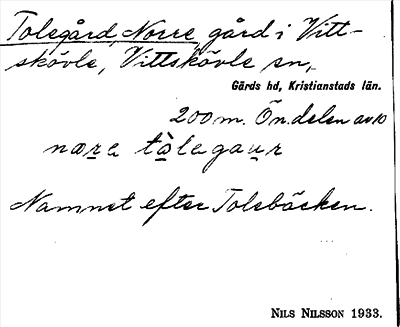 Tolegård, Norre gård i Vitt-
skövle, Vittskövle sn,
Gärds hd, Kristianstads län.
200 m. Ön. delen av 10
næra tòlagaur
Namnet efter Tolebäcken.
NILS NILSSON 1933.